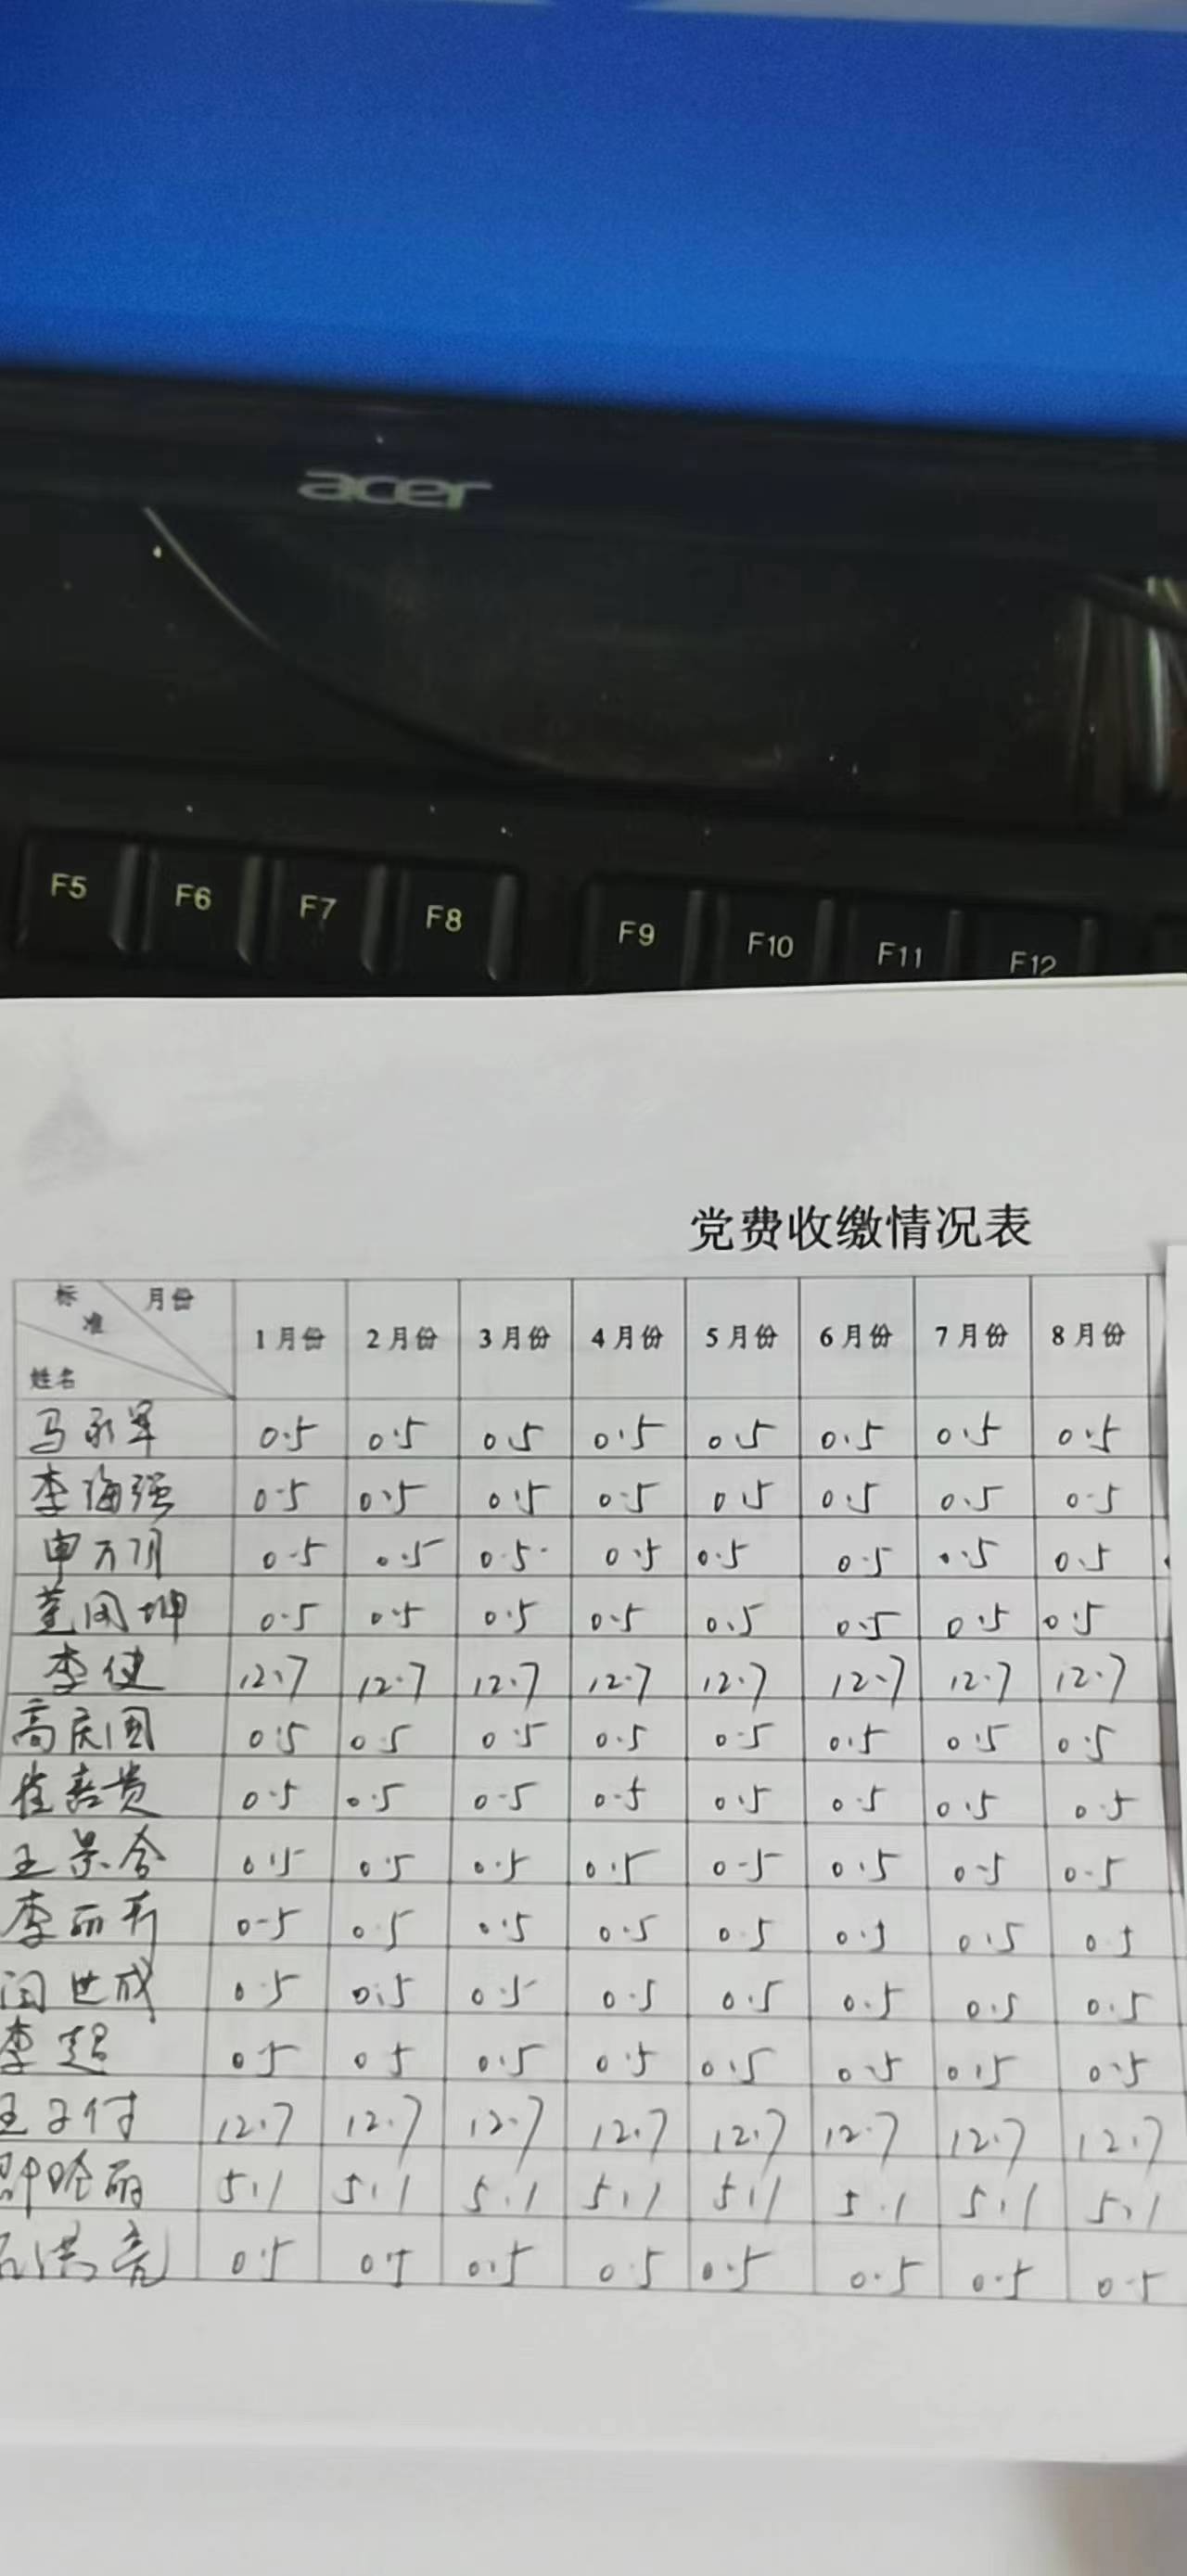 acer
F5 F6 F7 F8 F9 F10 F11 F12
党费收缴情况表
标准 月份 姓名 1月份 2月份 3月份 4月份 5月份 6月份 7月份 8月份
马永军 0.5 0.5 0.5 0.5 0.5 0.5 0.5 0.5
李海强 0.5 0.5 0.5 0.5 0.5 0.5 0.5 0.5
申万 0.5 0.5 0.5 0.5 0.5 0.5 0.5 0.5
0.5 0.5 0.5 0.5 0.5 0.5 0.5 0.5
李健 12.7 12.7 12.7 12.7 12.7 12.7 12.7 12.7
高庆国 0.5 0.5 0.5 0.5 0.5 0.5 0.5 0.5
崔喜贵 0.5 0.5 0.5 0.5 0.5 0.5 0.5 0.5
王景合 0.5 0.5 0.5 0.5 0.5 0.5 0.5 0.5
李丽 0.5 0.5 0.5 0.5 0.5 0.5 0.5 0.5
闫世成 0.5 0.5 0.5 0.5 0.5 0.5 0.5 0.5
李超 0.5 0.5 0.5 0.5 0.5 0.5 0.5 0.5
王子付 12.7 12.7 12.7 12.7 12.7 12.7 12.7 12.7
5.1 5.1 5.1 5.1 5.1 5.1 5.1 5.1
洪亮 0.5 0.5 0.5 0.5 0.5 0.5 0.5 0.5